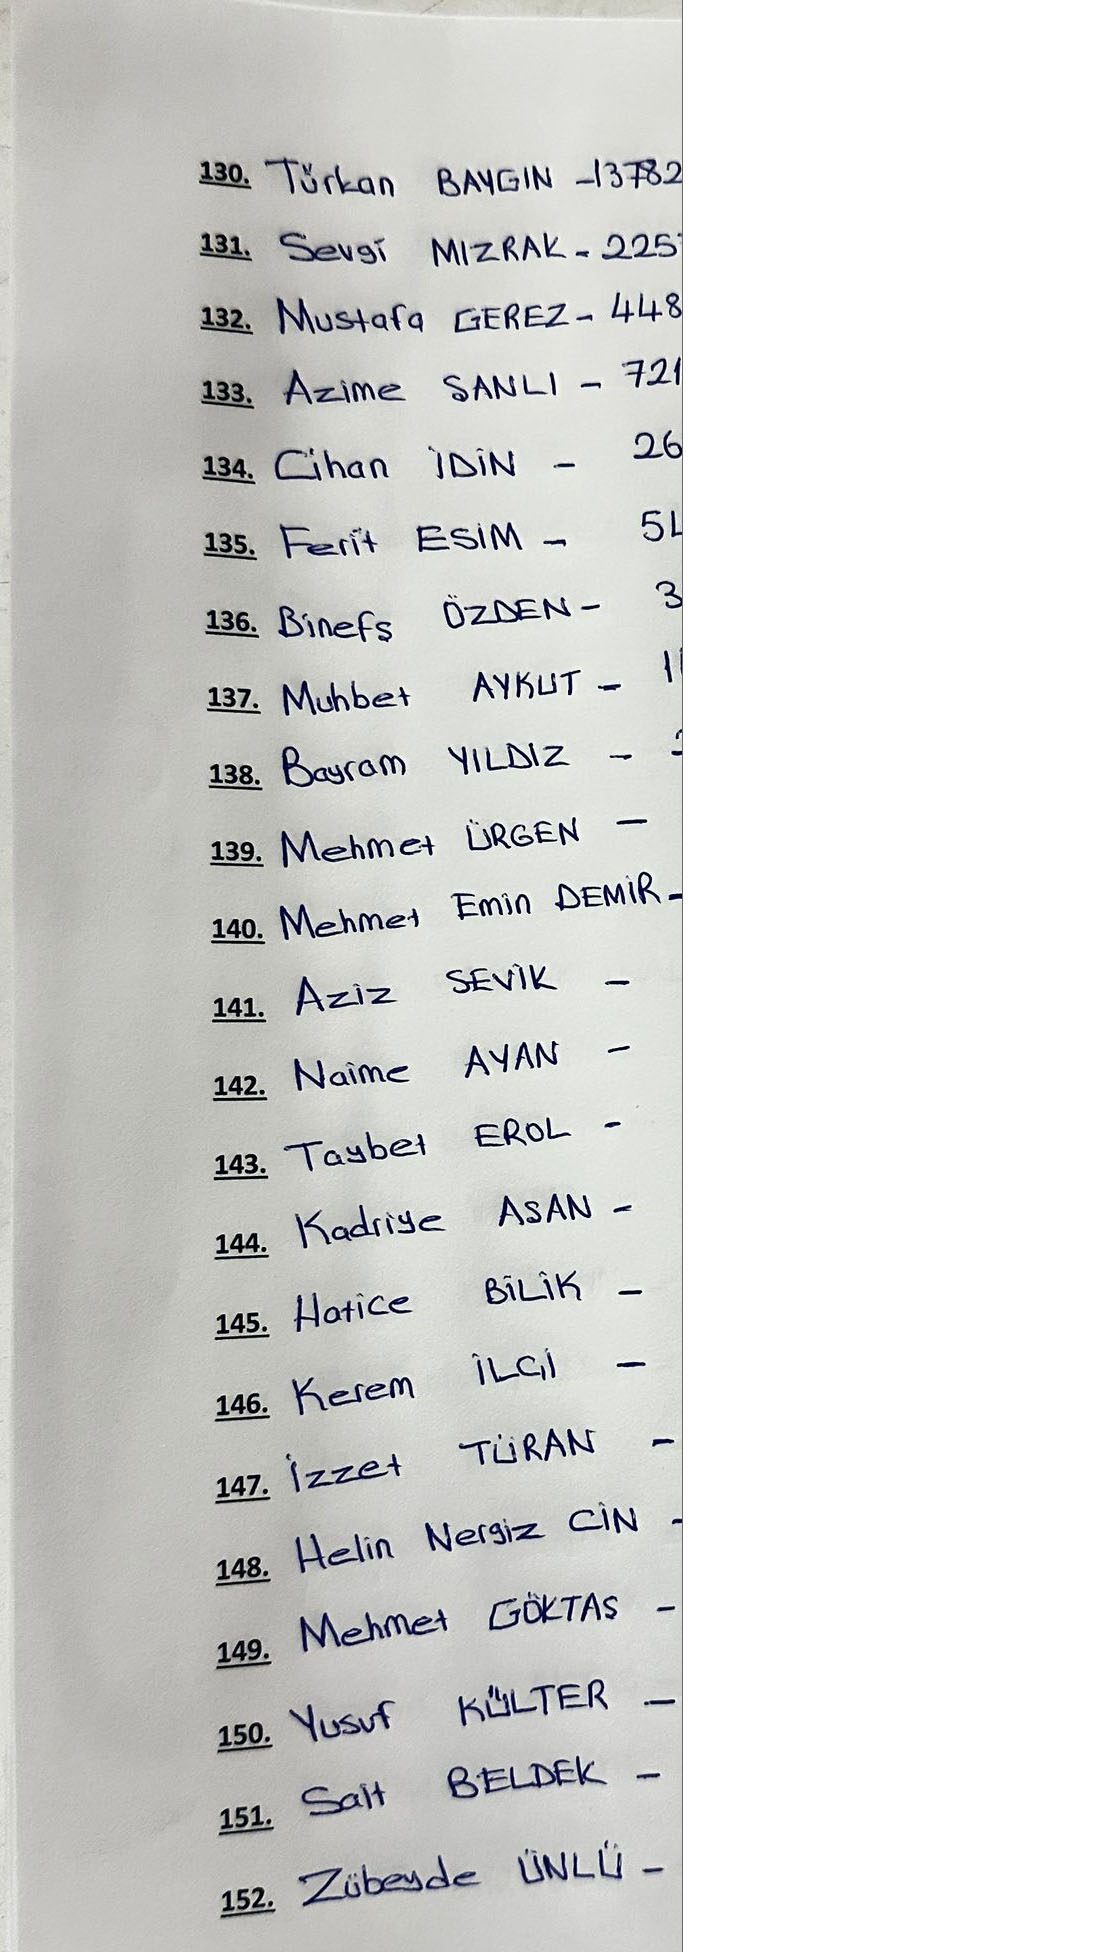 130. Türkan BAYGIN - 13782
131. Sevgi MIZRAK - 225
132. Mustafa GEREZ - 448
133. Azime SANLI - 721
134. Cihan İDİN - 26
135. Ferit ESİM - 5
136. Binefş ÖZDEN - 3
137. Muhbet AYKUT - 1
138. Bayram YILDIZ -
139. Mehmet ÜRGEN -
140. Mehmet Emin DEMİR -
141. Aziz SEVİK -
142. Naime AYAN -
143. Taybet EROL -
144. Kadriye ASAN -
145. Hatice BİLİK -
146. Kerem İLGİ -
147. İzzet TÜRAN -
148. Helin Nergiz CİN -
149. Mehmet GÖKTAS -
150. Yusuf KÜLTER -
151. Sait BELDEK -
152. Zübeyde ÜNLÜ -